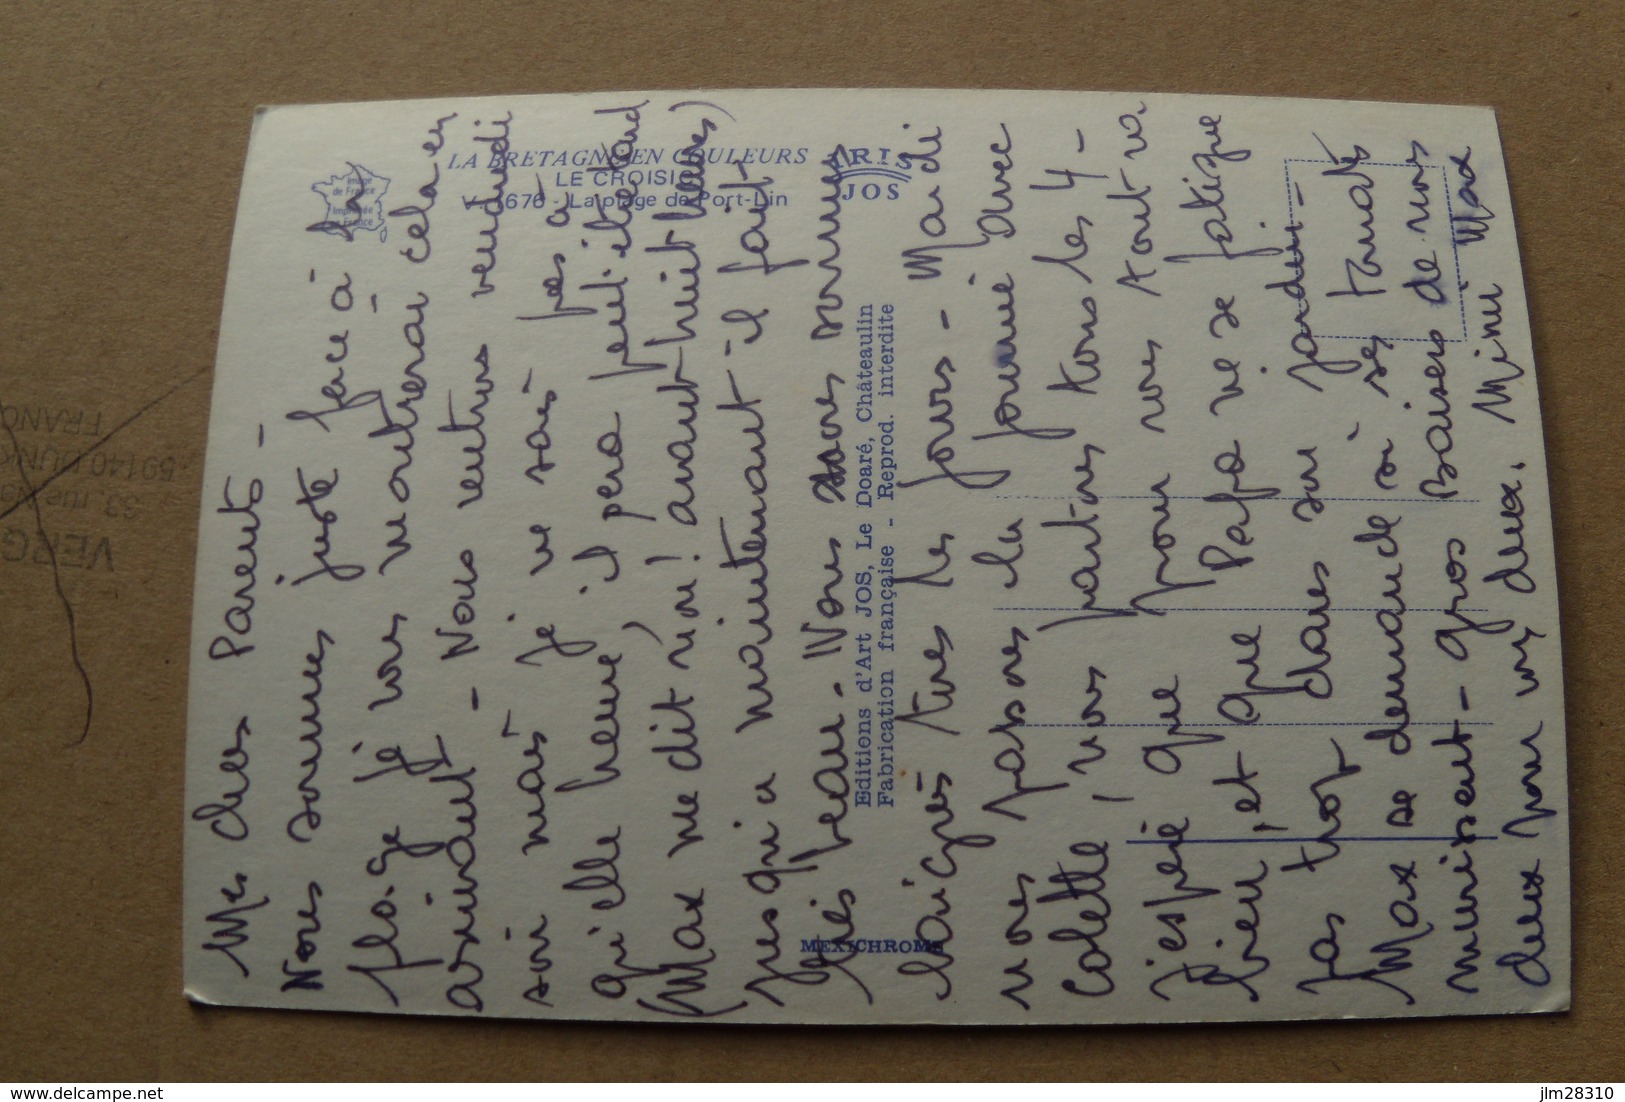 Mes chers Parents -
Nous sommes juste face à la
plage je vous montrerai cela en
arrivant - Nous rentrons vendredi
soir mais je ne sais pas à
qu'elle heure, il sera peut-être tard
(Max me dit non! avant huit heures)
Jusqu'a maintenant il fait
très beau. Nous nous sommes
baignés tous les jours - Mardi
nous passons la journée avec
Colette, nous partons tous les 4 -
J'espère que pour vous tout va
bien, et que Papa ne se fatigue
pas trop dans son jardin -
Max se demande si ses tomates
murissent - gros Baisers de nous
deux pour vous deux. Mimi Max
LA BRETAGNE EN COULEURS
LE CROISIC
676 - La plage de Port-Lin
Image de France
Imprimée en France
JOS
Editions d'Art JOS, Le Doaré, Châteaulin
Fabrication française - Reprod. interdite
MEXICHROME
VERG
59140 DUNK
FRANC
delcampe.net
jlm28310